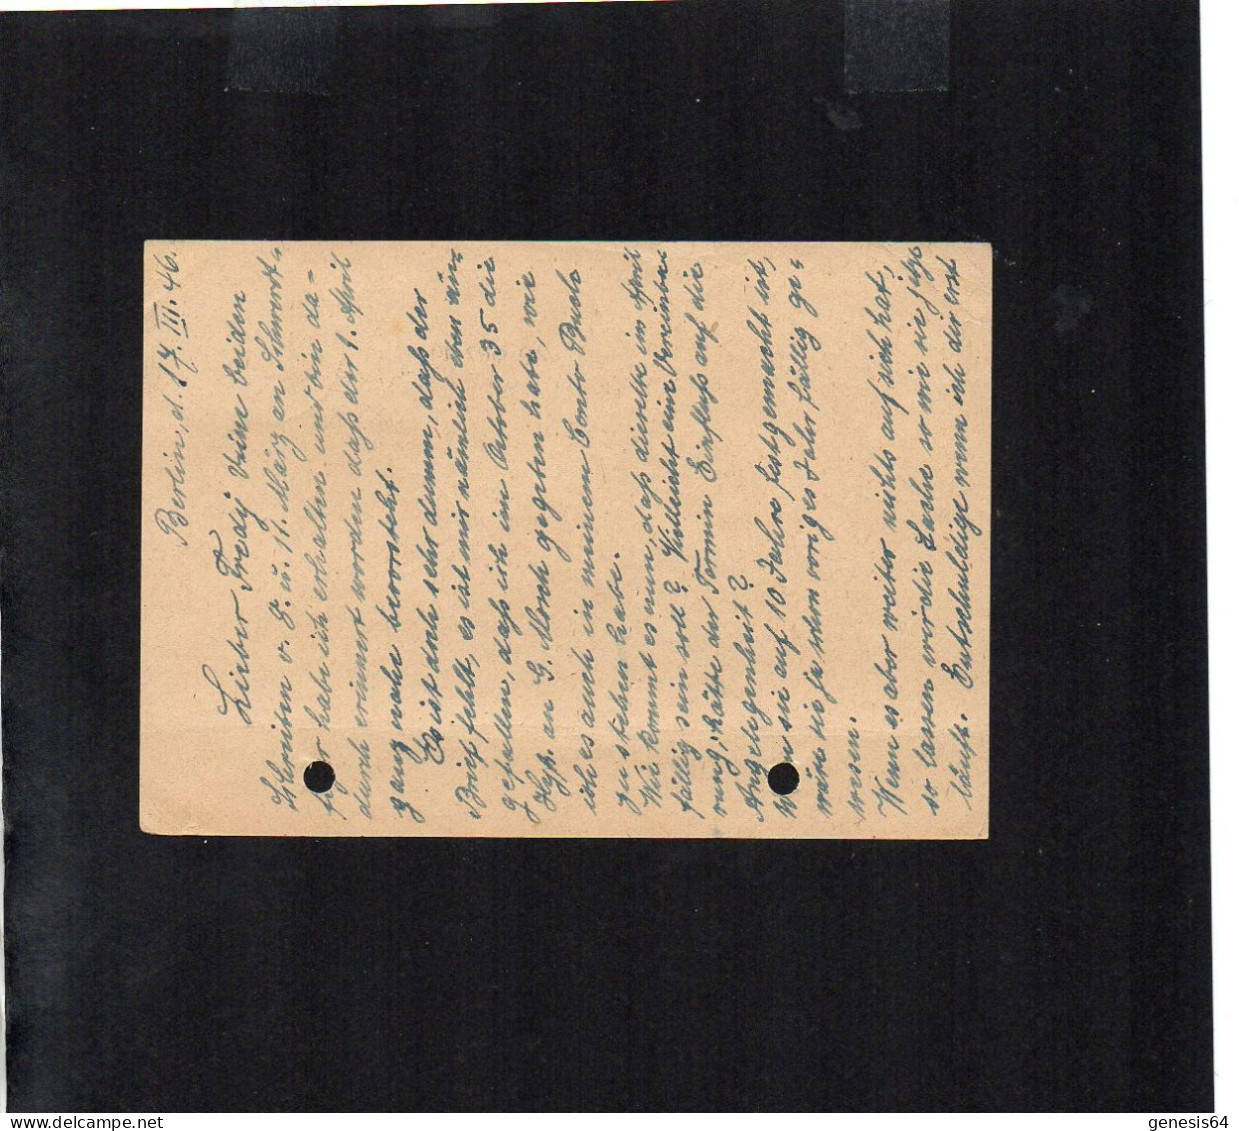 Berlin, d. 17. III. 46.
Lieber Fredy! Deine beiden
Schreiben v. 8. u. 11. März an
habe ich erhalten und bin da-
durch erinnert worden daß der 1. April
ganz nahe bevorsteht.
Es ist doch sehr dumm, daß der
Brief fehlt, es ist mir nämlich
gefallen, daß ich im 35 die
Hyp. an G. gegeben habe, wie
ich es auch in meinem Conto Buch
zu stehen habe.
Wie kommt es nun, daß dieselbe im April
fällig sein soll? Vielleicht eine Vereinba-
rung, hätte der Termin Einfluß auf die
Angelegenheit?
Wenn sie auf 10 Jahre fest gemacht ist,
wäre sie ja schon voriges Jahr fällig ge-
wesen.
Wenn es aber weiter nichts auf sich hat,
so lassen wir die Sache so wie sie jetzt
läuft. Entschuldige wenn ich dir erst
genesis64